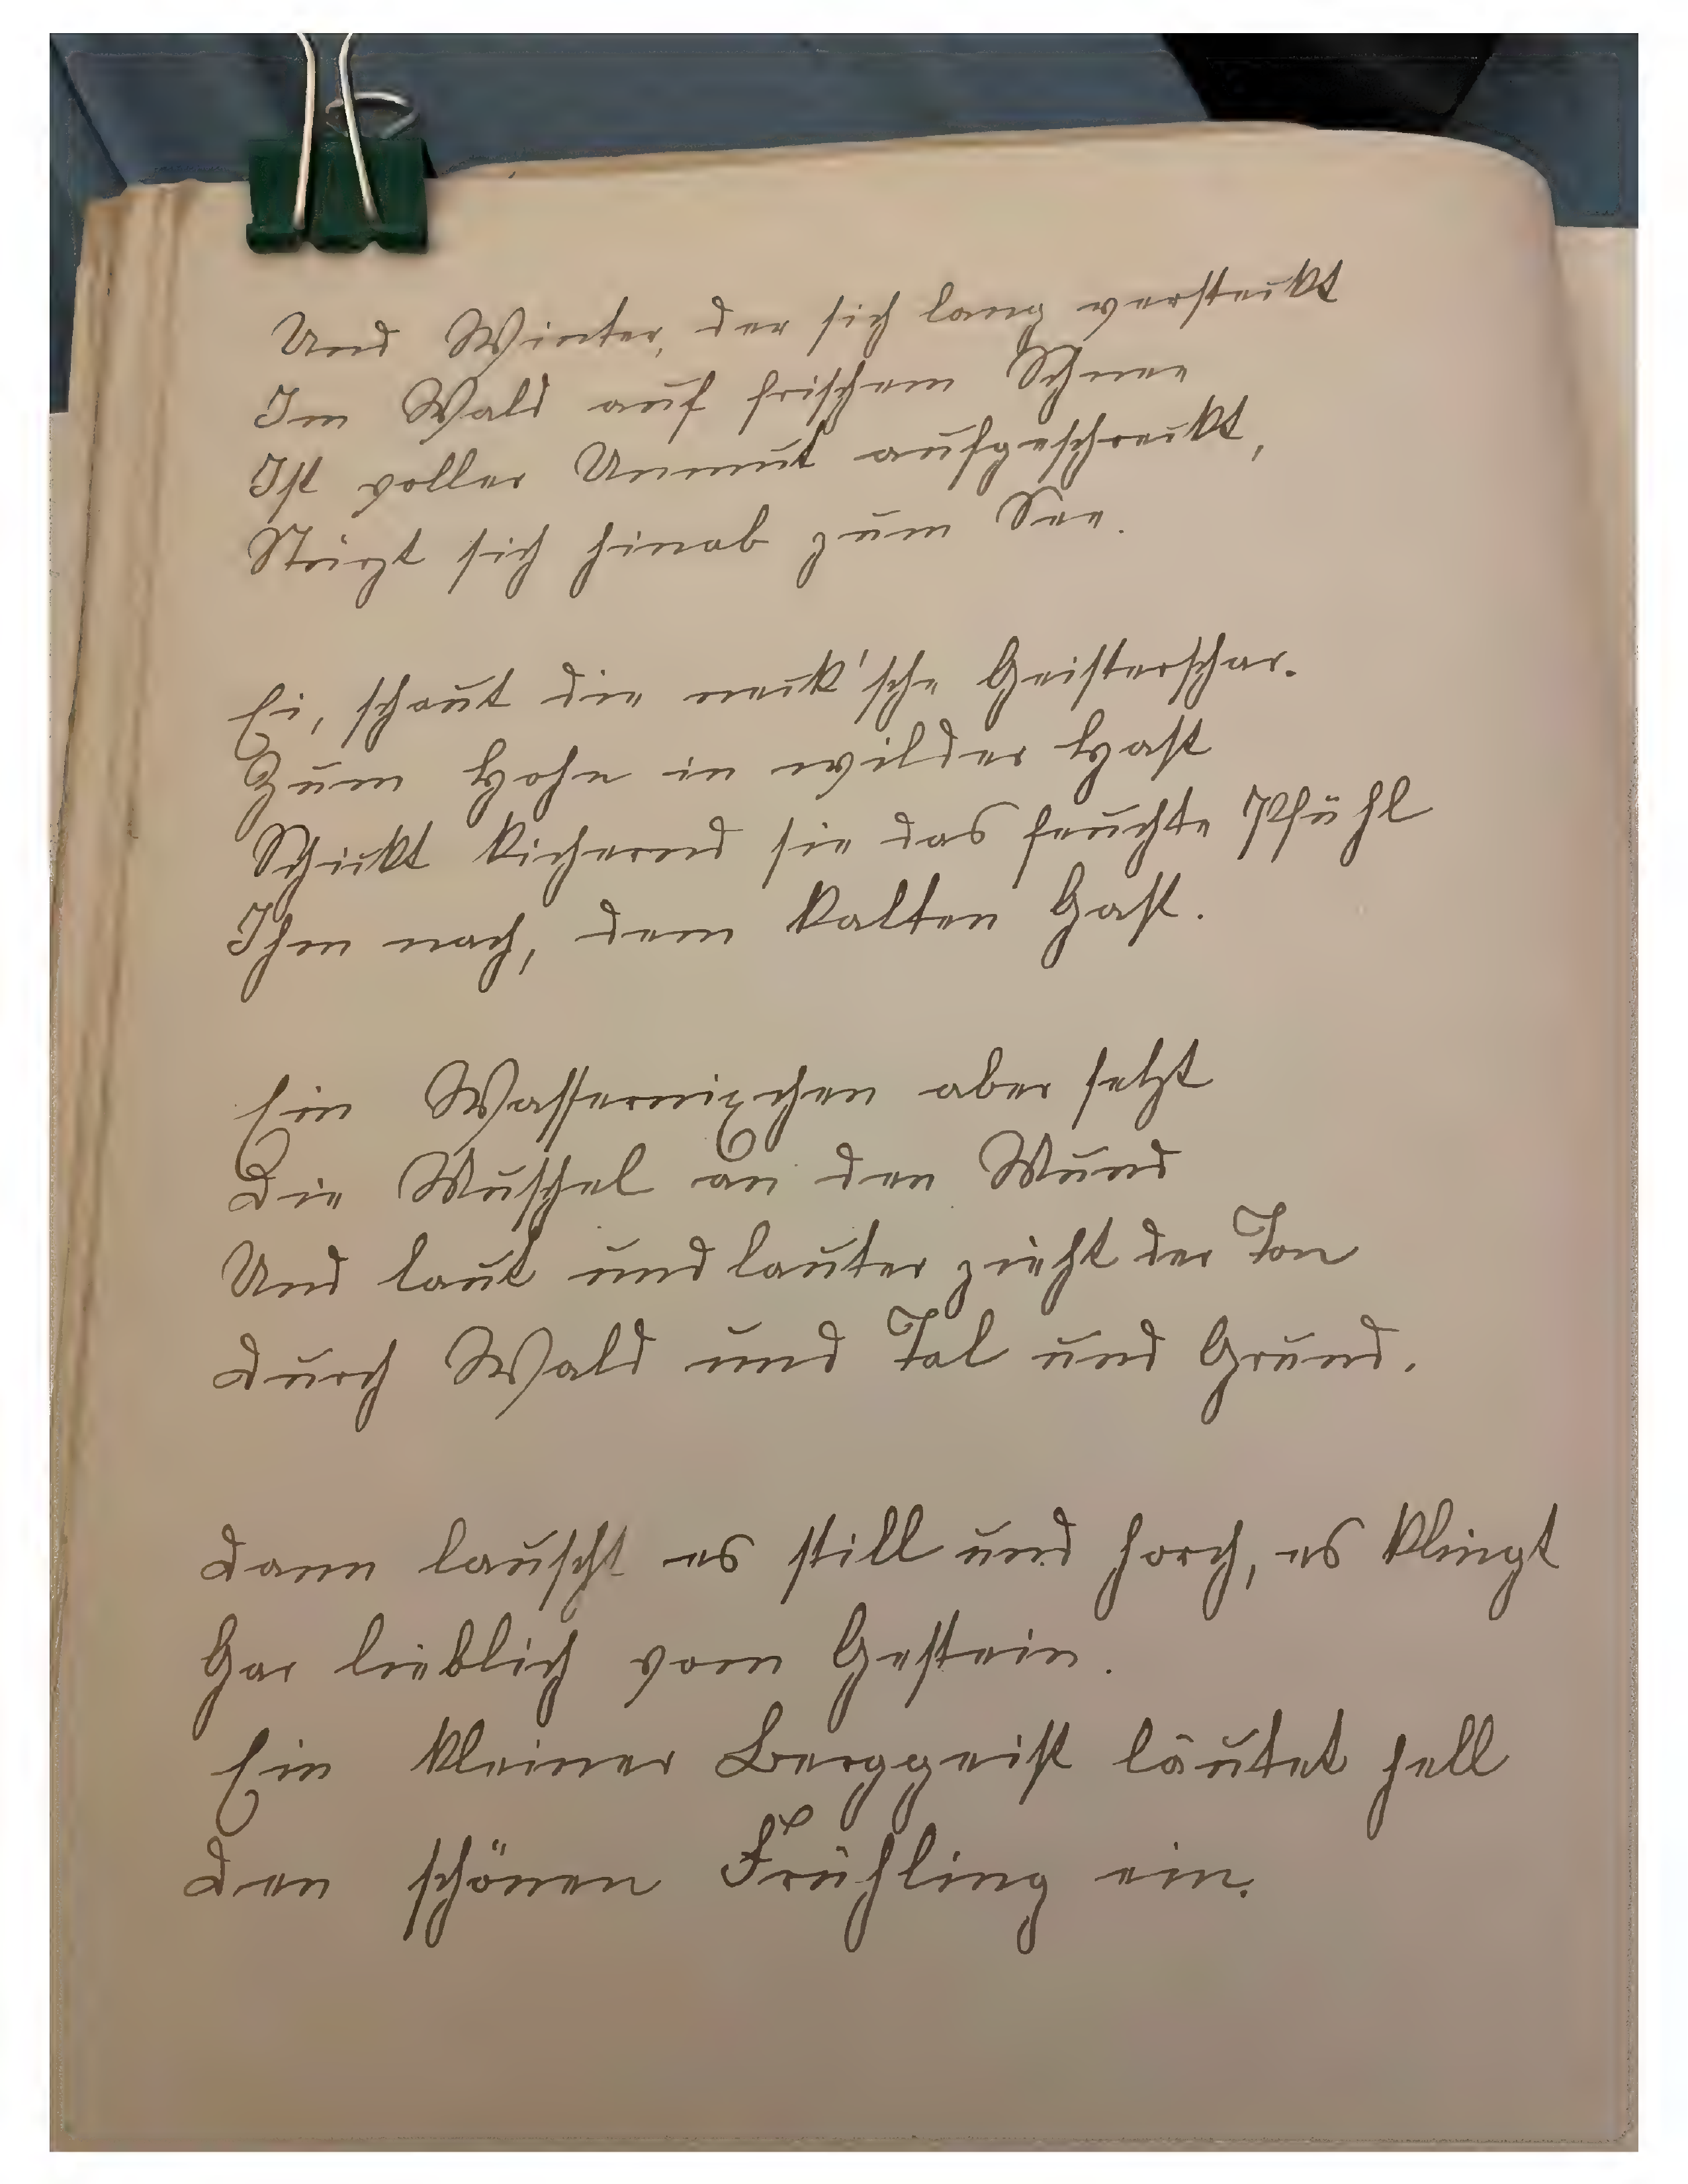 Und Winter, der sich lang versteckt
Im Wald auf frischem Schnee
Ist voller Unmut aufgeschreckt,
Stürzt sich hinab zum See.
Ei, schaut die neck'sche Geisterschar.
Zum Hohn in wilder Hast
Schickt kichernd sie das feuchte Pfühl
Ihm nach, dem kalten Gast.
Ein Wassernixchen aber setzt
Die Muschel an den Mund
Und laut und lauter zieht der Ton
Durch Wald und Tal und Grund.
Dann lauscht es still und horch, es klingt
Gar lieblich vom Gestein.
Ein kleiner Berggeist läutet hell
Den schönen Frühling ein.